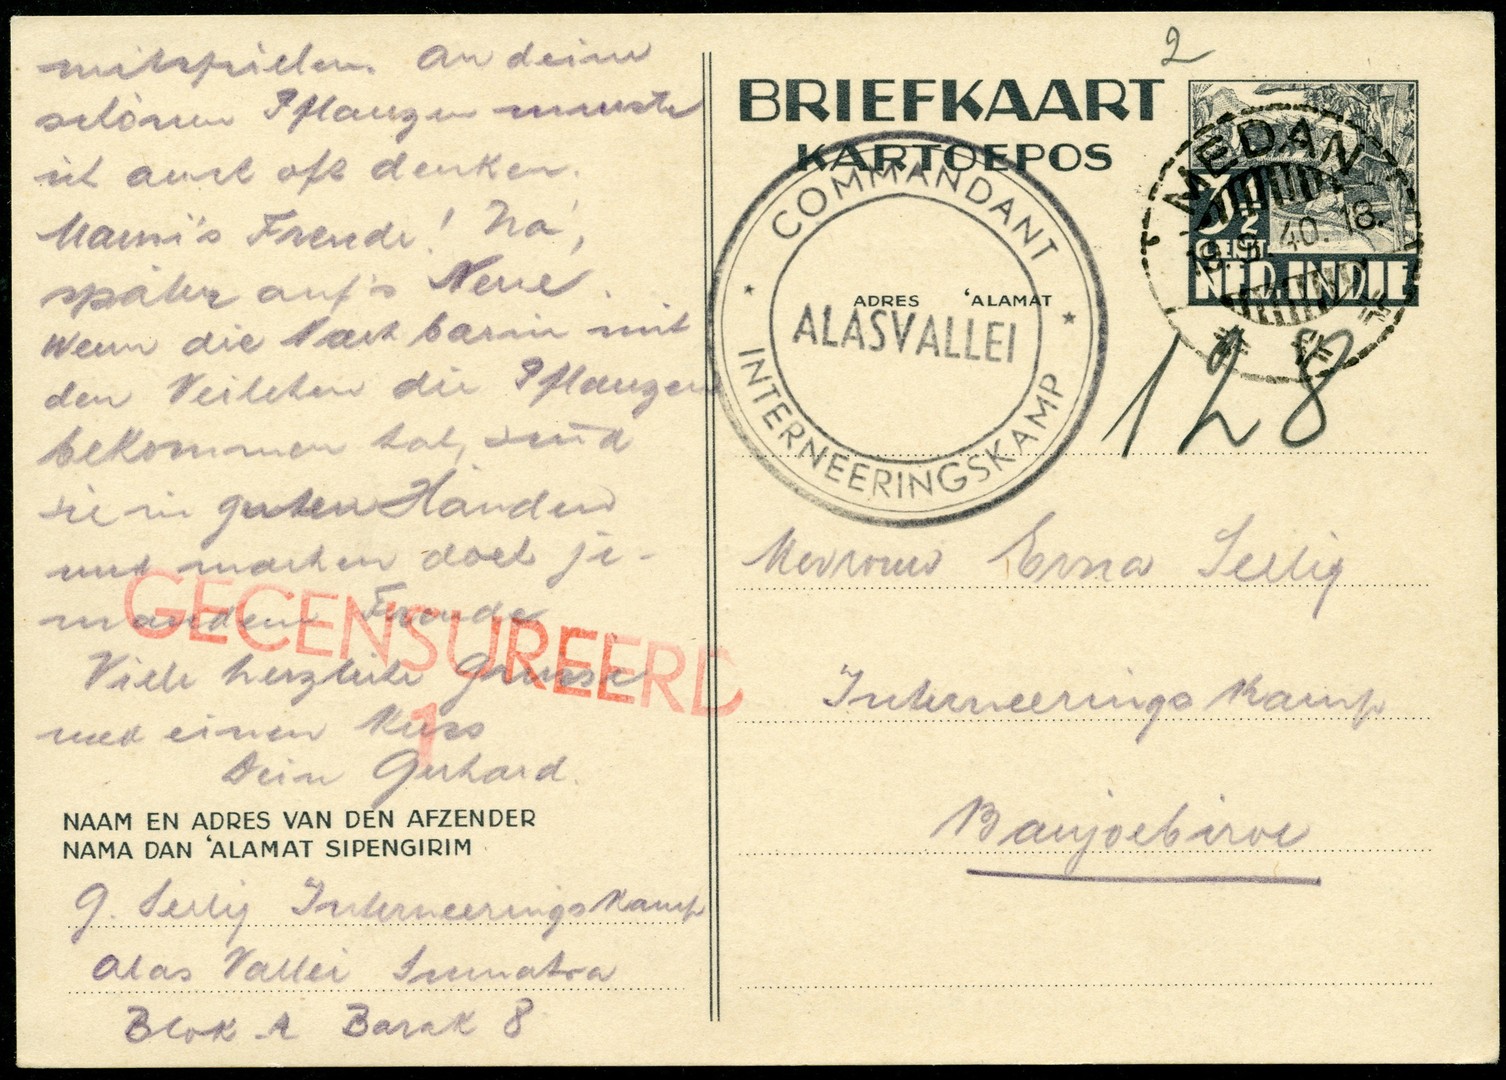 mitspielen. An deine
schönen Pflanzen musste
ich auch oft denken.
Mami's Freude! Na,
später auf's Neue.
Wenn die Nachbarin mit
den Veilchen die Pflanzen
bekommen hat, sind
sie in guten Händen
und machen doch je-
mandem Freude.
Viele herzliche Grüsse
und einen Kuss
Dein Gerhard.
GECENSUREERD
1
NAAM EN ADRES VAN DEN AFZENDER
NAMA DAN 'ALAMAT SIPENGIRIM
G. Seelig Interneeringskamp
Alas Vallei Sumatra
Blok A Barak 8
2
BRIEFKAART
KARTOEPOS
MEDAN
40.18.
CENT
NED. INDIE
COMMANDANT
ADRES 'ALAMAT
ALASVALLEI
INTERNEERINGSKAMP
128
Mevrouw Erna Seelig
Interneerings Kamp
Banjoebiroe